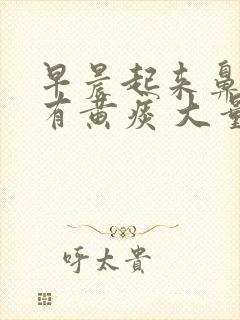 早晨起来鼻
有黄痰大量
呼太貴